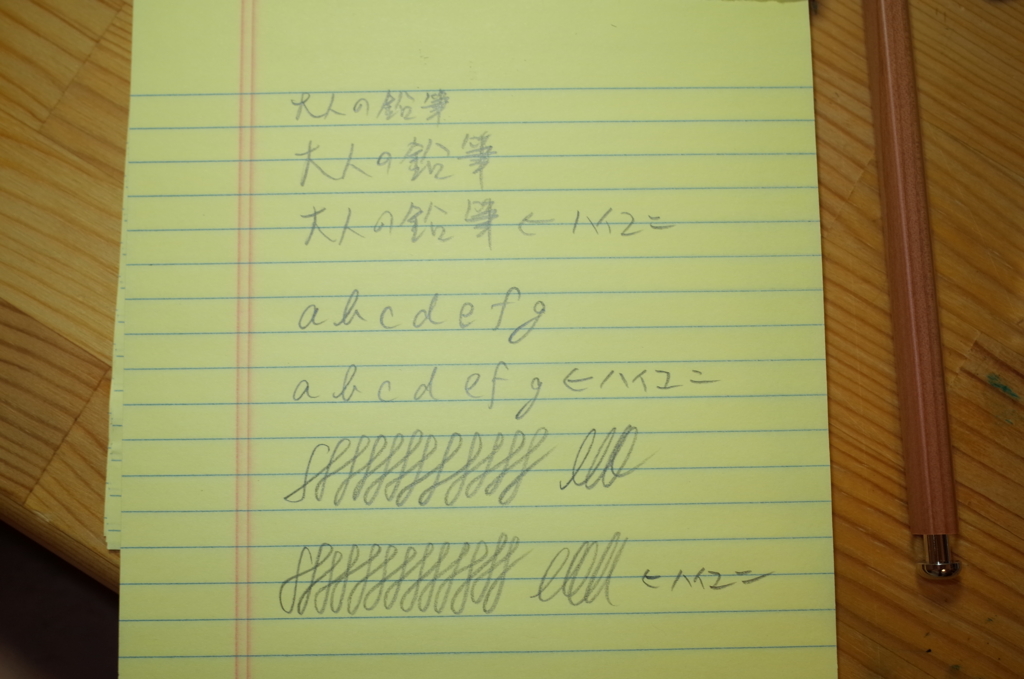 大人の鉛筆
大人の鉛筆
大人の鉛筆 ← ハイユニ
a b c d e f g
a b c d e f g ← ハイユニ
← ハイユニ